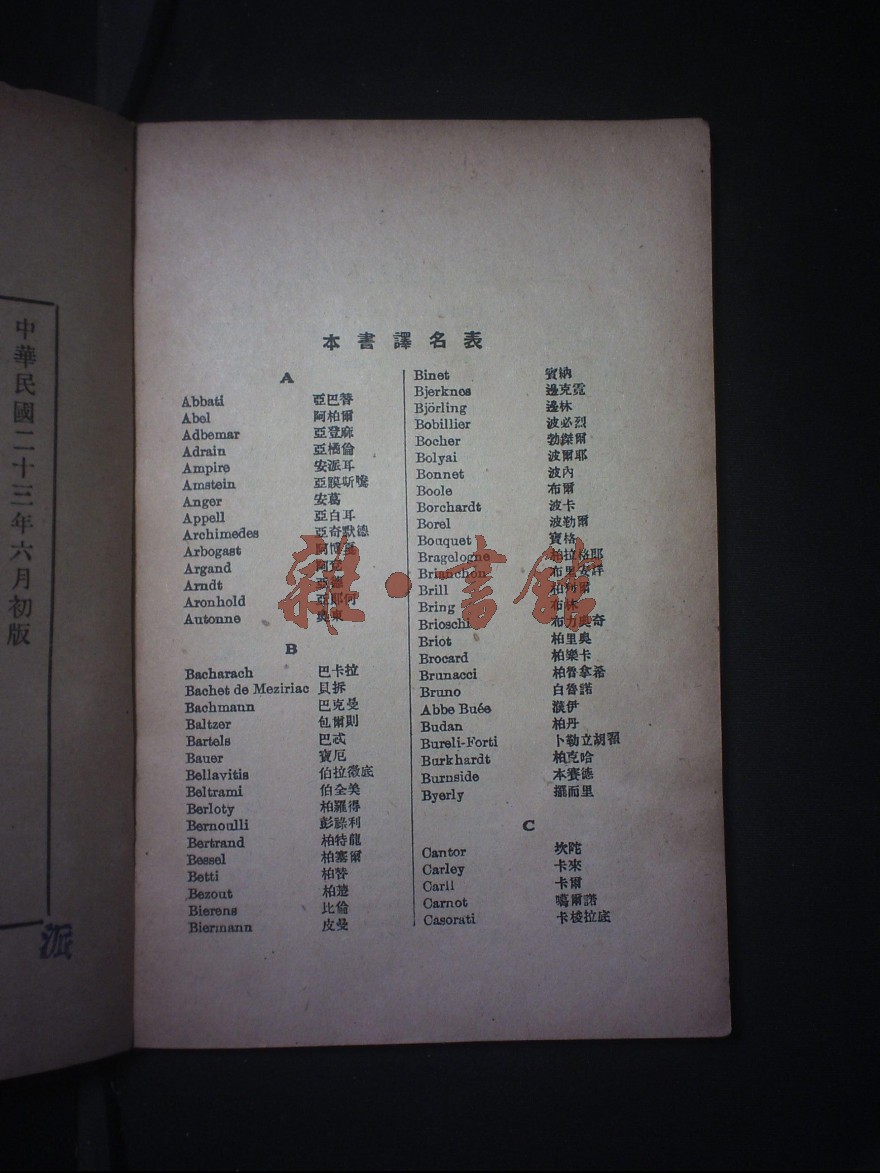 中華民國二十三年六月初版
派
本書譯名表
A
Abbati 亞巴替
Abel 阿柏爾
Adbemar 亞登麻
Adrain 亞橘倫
Ampire 安派耳
Amstein
Anger 安葛
Appell 亞白耳
Archimedes 亞奇默德
Arbogast
Argand
Arndt 亞德
Aronhold 亞那何
Autonne 奧東
B
Bacharach 巴卡拉
Bachet de Meziriac 貝拆
Bachmann 巴克曼
Baltzer 包爾則
Bartels 巴忒
Bauer 寶厄
Bellavitis 伯拉徵底
Beltrami 伯全美
Berloty 柏羅得
Bernoulli 彭祿利
Bertrand 柏特龍
Bessel 柏塞爾
Betti 柏替
Bezout 柏楚
Bierens 比倫
Biermann 皮曼
Binet 賓納
Bjerknes 邊克霓
Björling 邊林
Bobillier 波必烈
Bocher 勃傑爾
Bolyai 波爾耶
Bonnet 波內
Boole 布爾
Borchardt 波卡
Borel 波勒爾
Bouquet 寶格
Bragelogne 柏拉格耶
Brianchen
Brill 柏列爾
Bring 布林
Brioschi 布力奧奇
Briot 柏里奧
Brocard 柏樂卡
Brunacci 柏魯拿希
Bruno 白魯諾
Abbe Buée 濮伊
Budan 柏丹
Bureli-Forti 卜勒立胡
Burkhardt 柏克哈
Burnside 本賽德
Byerly 擺而里
C
Cantor 坎陀
Carley 卡來
Carll 卡爾
Carnot 噶爾諾
Casorati 卡梭拉底
雜·書館